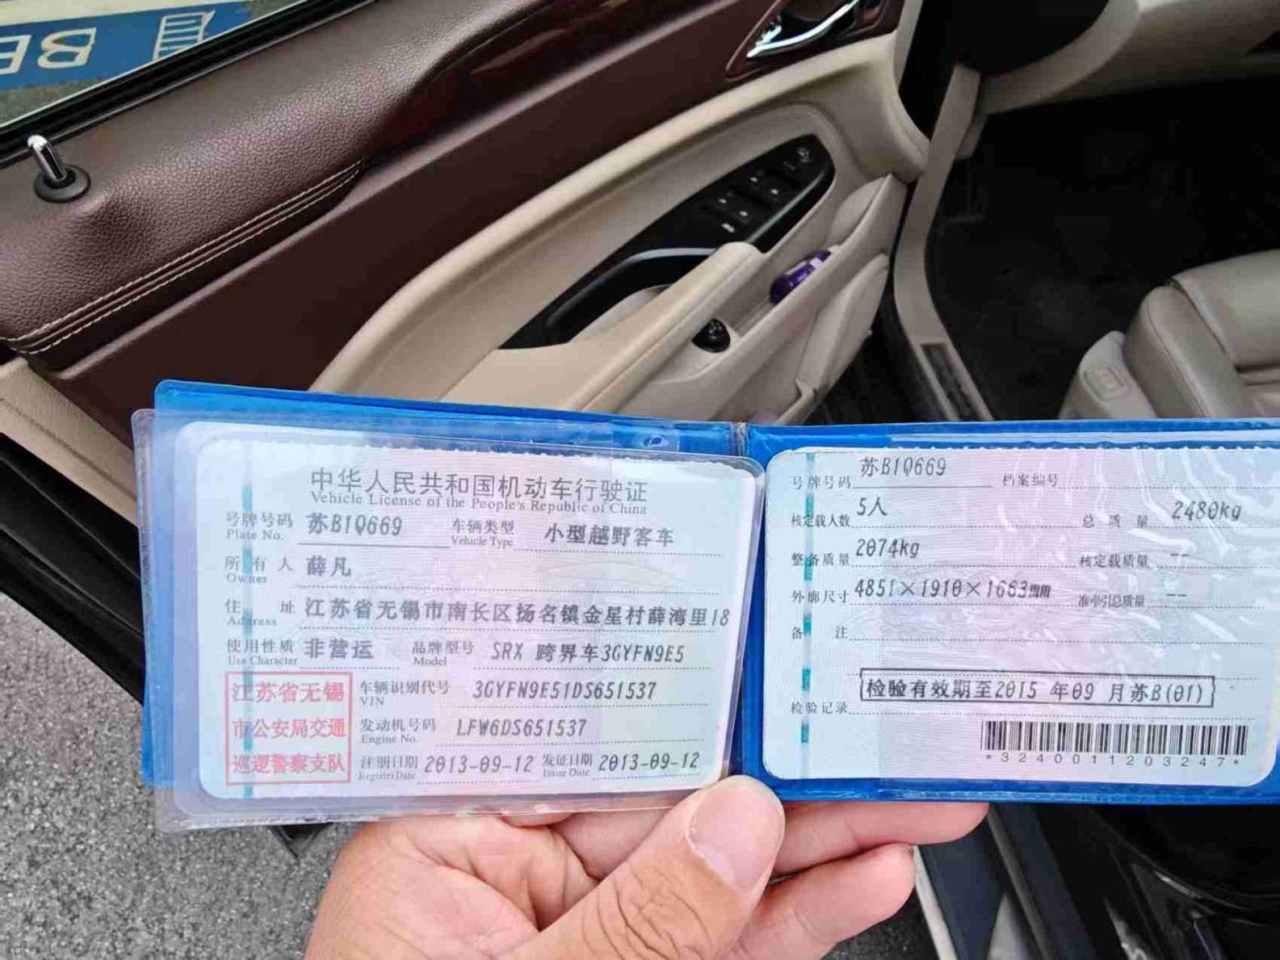 中华人民共和国机动车行驶证
Vehicle License of the People's Republic of China
号牌号码 苏B1Q669 车辆类型 小型越野客车
Plate No. Vehicle Type
所有人 薛凡
Owner
住址 江苏省无锡市南长区扬名镇金星村薛湾里18
Address
使用性质 非营运 品牌型号 SRX 跨界车3GYFN9E5
Use Character Model
江苏省无锡
市公安局交通
巡逻警察支队
车辆识别代号 3GYFN9E51DS651537
VIN
发动机号码 LFW6DS651537
Engine No.
注册日期 2013-09-12 发证日期 2013-09-12
Register Date Issue Date
号牌号码 苏B1Q669 档案编号
核定载人数 5人 总质量 2480kg
整备质量 2074kg 核定载质量 --
外廓尺寸 4851×1910×1663mm 准牵引总质量 --
备注
检验记录 检验有效期至2015 年09 月苏B(01)
*3240011203247*